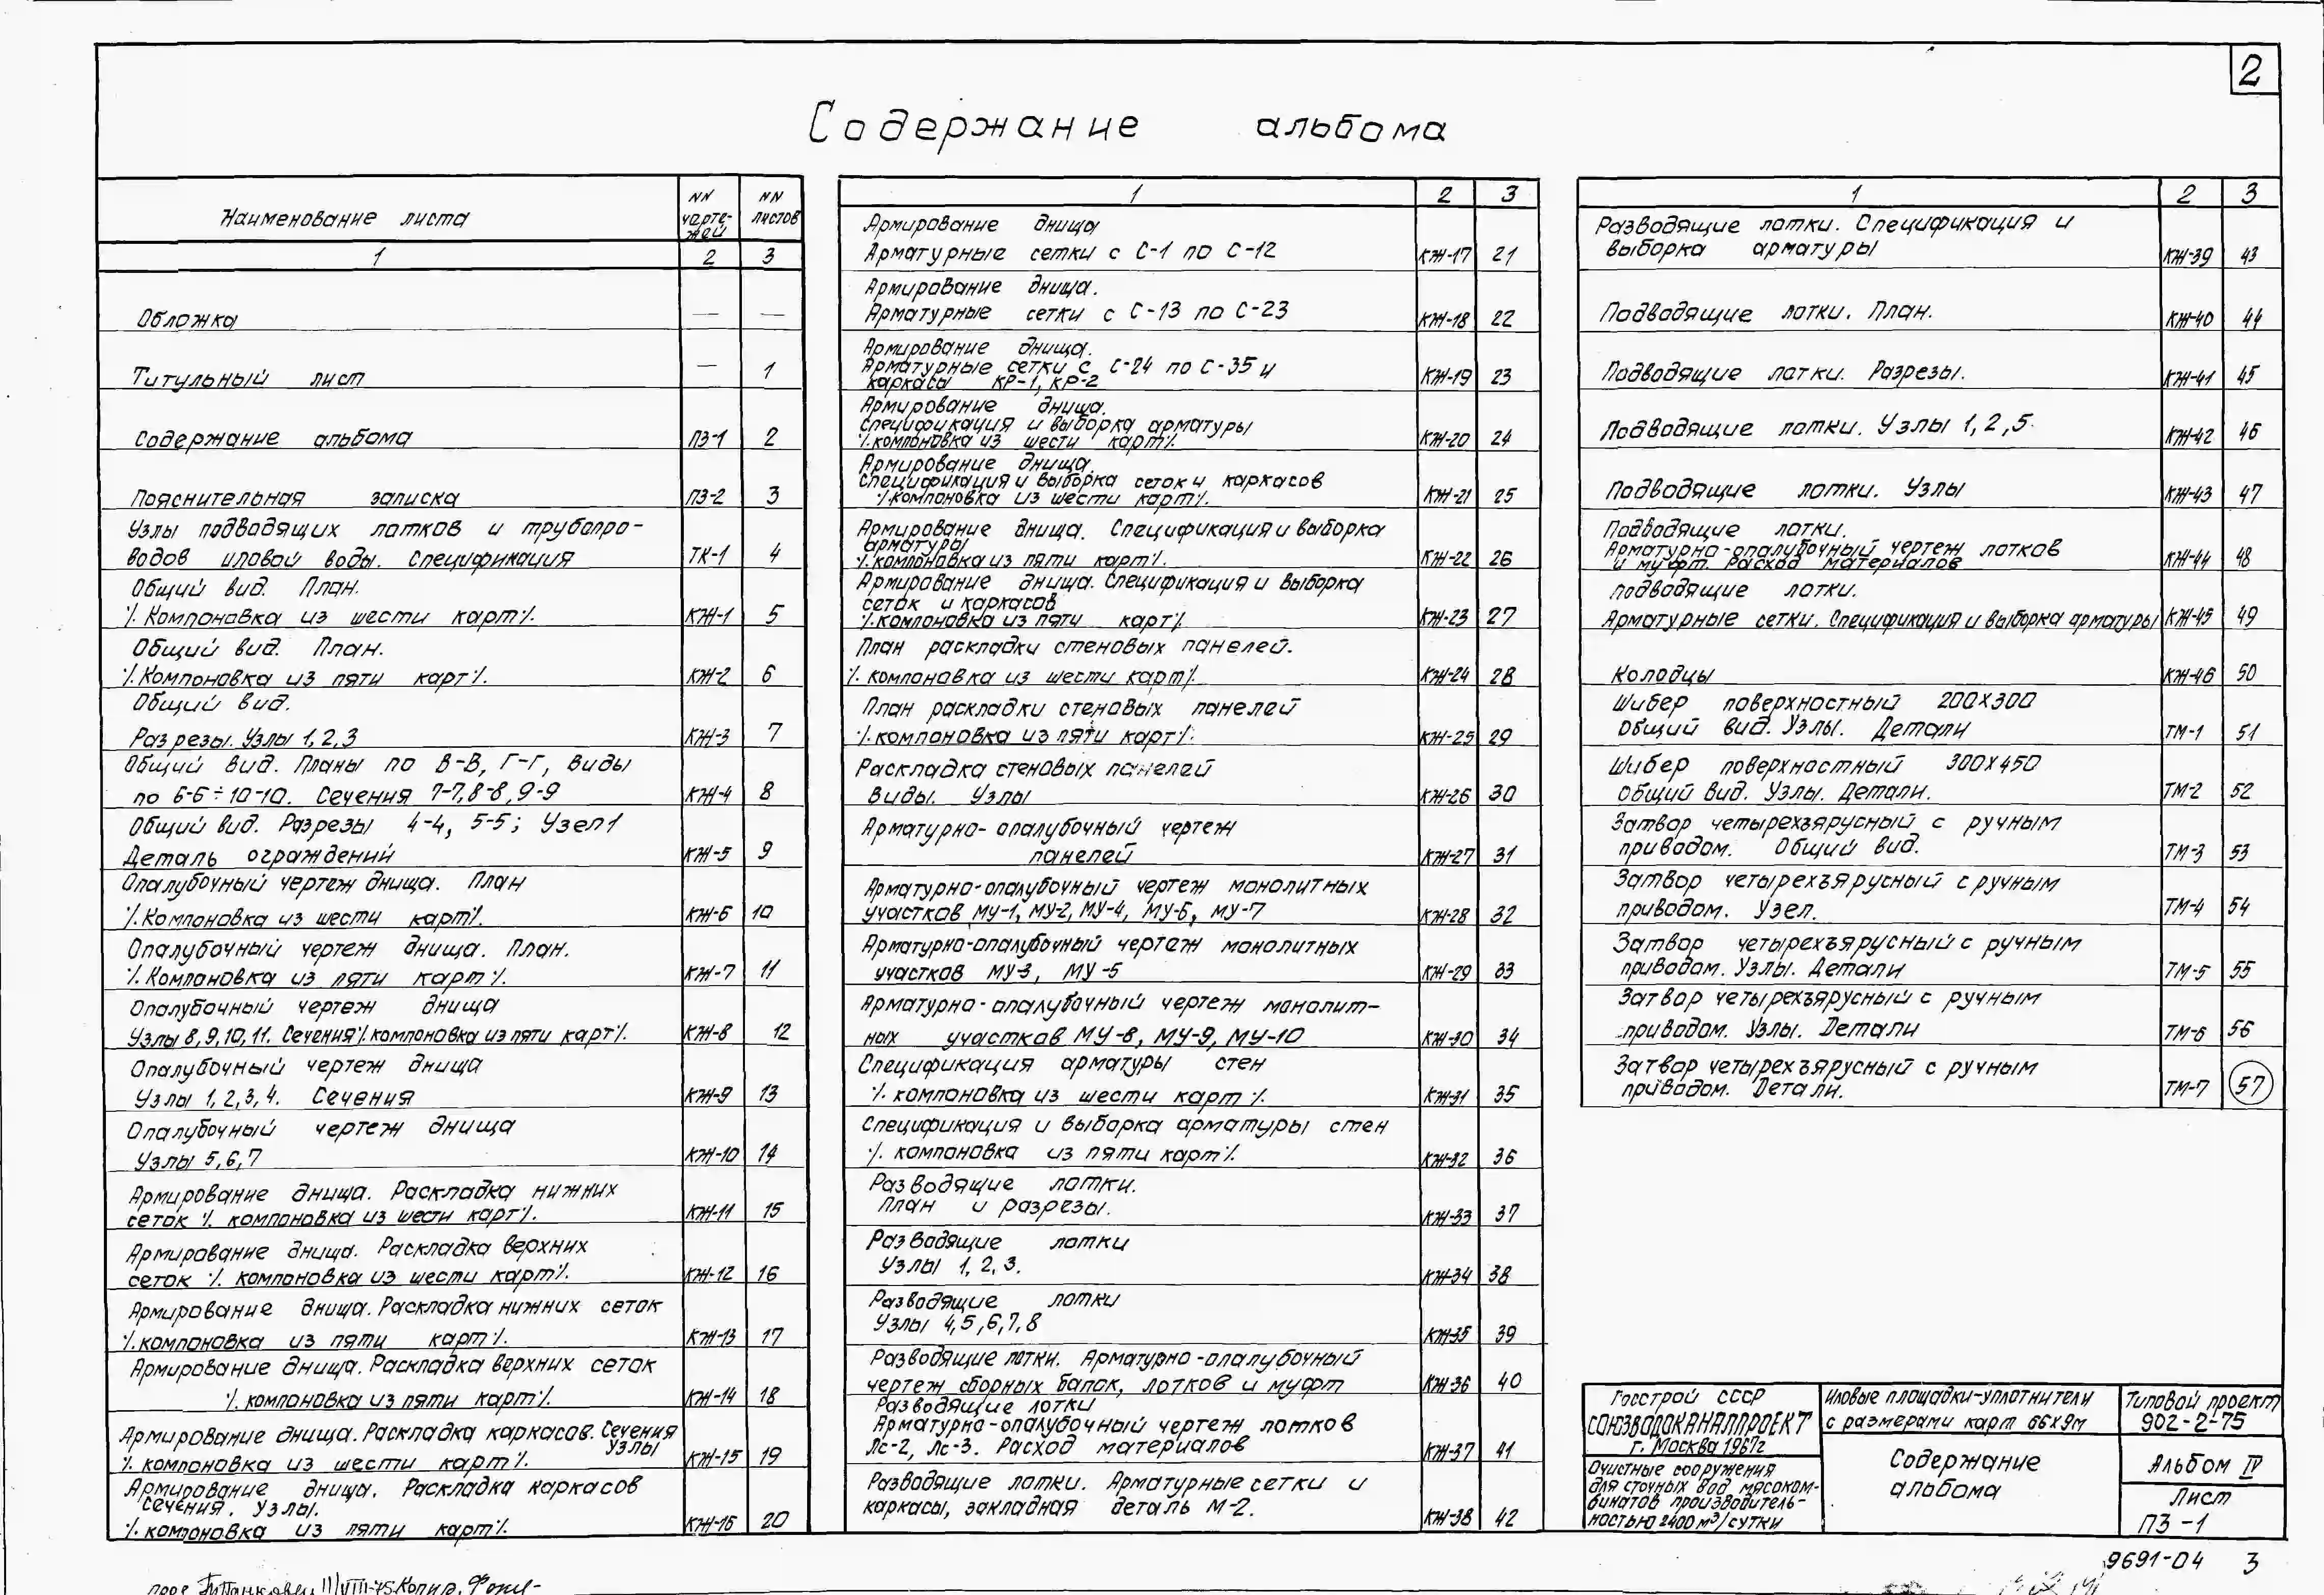 2
Содержание альбома
Наименование листа | NN чертежей | NN листов
1 | 2 | 3
Обложка — —
Титульный лист — 1
Содержание альбома ПЗ-1 2
Пояснительная записка ПЗ-2 3
Узлы подводящих лотков и трубопро-
водов иловой воды. Спецификация ТК-1 4
Общий вид. План.
⁒ Компоновка из шести карт ⁒. КЖ-1 5
Общий вид. План.
⁒ Компоновка из пяти карт ⁒. КЖ-2 6
Общий вид.
Разрезы. Узлы 1, 2, 3 КЖ-3 7
Общий вид. Планы по В-В, Г-Г, виды
по 6-6÷10-10. Сечения 7-7, 8-8, 9-9 КЖ-4 8
Общий вид. Разрезы 4-4, 5-5; Узел 1
Деталь ограждений КЖ-5 9
Опалубочный чертеж днища. План
⁒ Компоновка из шести карт ⁒. КЖ-6 10
Опалубочный чертеж днища. План.
⁒ Компоновка из пяти карт ⁒. КЖ-7 11
Опалубочный чертеж днища
Узлы 8, 9, 10, 11. Сечения ⁒ компоновка из пяти карт ⁒. КЖ-8 12
Опалубочный чертеж днища
Узлы 1, 2, 3, 4. Сечения КЖ-9 13
Опалубочный чертеж днища
Узлы 5, 6, 7 КЖ-10 14
Армирование днища. Раскладка нижних
сеток ⁒ компоновка из шести карт ⁒. КЖ-11 15
Армирование днища. Раскладка верхних
сеток ⁒ компоновка из шести карт ⁒. КЖ-12 16
Армирование днища. Раскладка нижних сеток
⁒ компоновка из пяти карт ⁒. КЖ-13 17
Армирование днища. Раскладка верхних сеток
⁒ компоновка из пяти карт ⁒. КЖ-14 18
Армирование днища. Раскладка каркасов. Сечения
Узлы
⁒ компоновка из шести карт ⁒. КЖ-15 19
Армирование днища. Раскладка каркасов
Сечения. Узлы.
⁒ компоновка из пяти карт ⁒ КЖ-16 20
1 | 2 | 3
Армирование днища
Арматурные сетки с С-1 по С-12 КЖ-17 21
Армирование днища.
Арматурные сетки с С-13 по С-23 КЖ-18 22
Армирование днища.
Арматурные сетки с С-24 по С-35 и
каркасы КР-1, КР-2 КЖ-19 23
Армирование днища.
Спецификация и выборка арматуры
⁒ компоновка из шести карт ⁒ КЖ-20 24
Армирование днища.
Спецификация и выборка сеток и каркасов
⁒ компоновка из шести карт ⁒. КЖ-21 25
Армирование днища. Спецификация и выборка
арматуры
⁒ компоновка из пяти карт ⁒. КЖ-22 26
Армирование днища. Спецификация и выборка
сеток и каркасов
⁒ компоновка из пяти карт ⁒ КЖ-23 27
План раскладки стеновых панелей.
⁒ компоновка из шести карт ⁒ КЖ-24 28
План раскладки стеновых панелей
⁒ компоновка из пяти карт ⁒ КЖ-25 29
Раскладка стеновых панелей
Виды. Узлы КЖ-26 30
Арматурно-опалубочный чертеж
панелей КЖ-27 31
Арматурно-опалубочный чертеж монолитных
участков МУ-1, МУ-2, МУ-4, МУ-6, МУ-7 КЖ-28 32
Арматурно-опалубочный чертеж монолитных
участков МУ-3, МУ-5 КЖ-29 33
Арматурно-опалубочный чертеж монолит-
ных участков МУ-8, МУ-9, МУ-10 КЖ-30 34
Спецификация арматуры стен
⁒ компоновка из шести карт ⁒ КЖ-31 35
Спецификация и выборка арматуры стен
⁒ компоновка из пяти карт ⁒ КЖ-32 36
Разводящие лотки.
План и разрезы. КЖ-33 37
Разводящие лотки
Узлы 1, 2, 3. КЖ-34 38
Разводящие лотки
Узлы 4, 5, 6, 7, 8 КЖ-35 39
Разводящие лотки. Арматурно-опалубочный
чертеж сборных балок, лотков и муфт КЖ-36 40
Разводящие лотки
Арматурно-опалубочный чертеж лотков
Лс-2, Лс-3. Расход материалов КЖ-37 41
Разводящие лотки. Арматурные сетки и
каркасы, закладная деталь М-2. КЖ-38 42
1 | 2 | 3
Разводящие лотки. Спецификация и
выборка арматуры КЖ-39 43
Подводящие лотки. План. КЖ-40 44
Подводящие лотки. Разрезы. КЖ-41 45
Подводящие лотки. Узлы 1, 2, 5. КЖ-42 46
Подводящие лотки. Узлы КЖ-43 47
Подводящие лотки.
Арматурно-опалубочный чертеж лотков
и муфт. Расход материалов КЖ-44 48
подводящие лотки.
Арматурные сетки. Спецификация и выборка арматуры КЖ-45 49
Колодцы КЖ-46 50
Шибер поверхностный 200х300
Общий вид. Узлы. Детали ТМ-1 51
Шибер поверхностный 300х450
Общий вид. Узлы. Детали. ТМ-2 52
Затвор четырехъярусный с ручным
приводом. Общий вид. ТМ-3 53
Затвор четырехъярусный с ручным
приводом. Узел. ТМ-4 54
Затвор четырехъярусный с ручным
приводом. Узлы. Детали ТМ-5 55
Затвор четырехъярусный с ручным
приводом. Узлы. Детали ТМ-6 56
Затвор четырехъярусный с ручным
приводом. Детали. ТМ-7 57
Госстрой СССР
СОЮЗВОДОКАНАЛПРОЕКТ
г. Москва 1967г
Очистные сооружения
для сточных вод мясоком-
бинатов производитель-
ностью 2400 м³/сутки
Иловые площадки-уплотнители
с размерами карт 66х9м
Содержание
альбома
Типовой проект
902-2-75
Альбом IV
Лист
ПЗ-1
9691-04 3